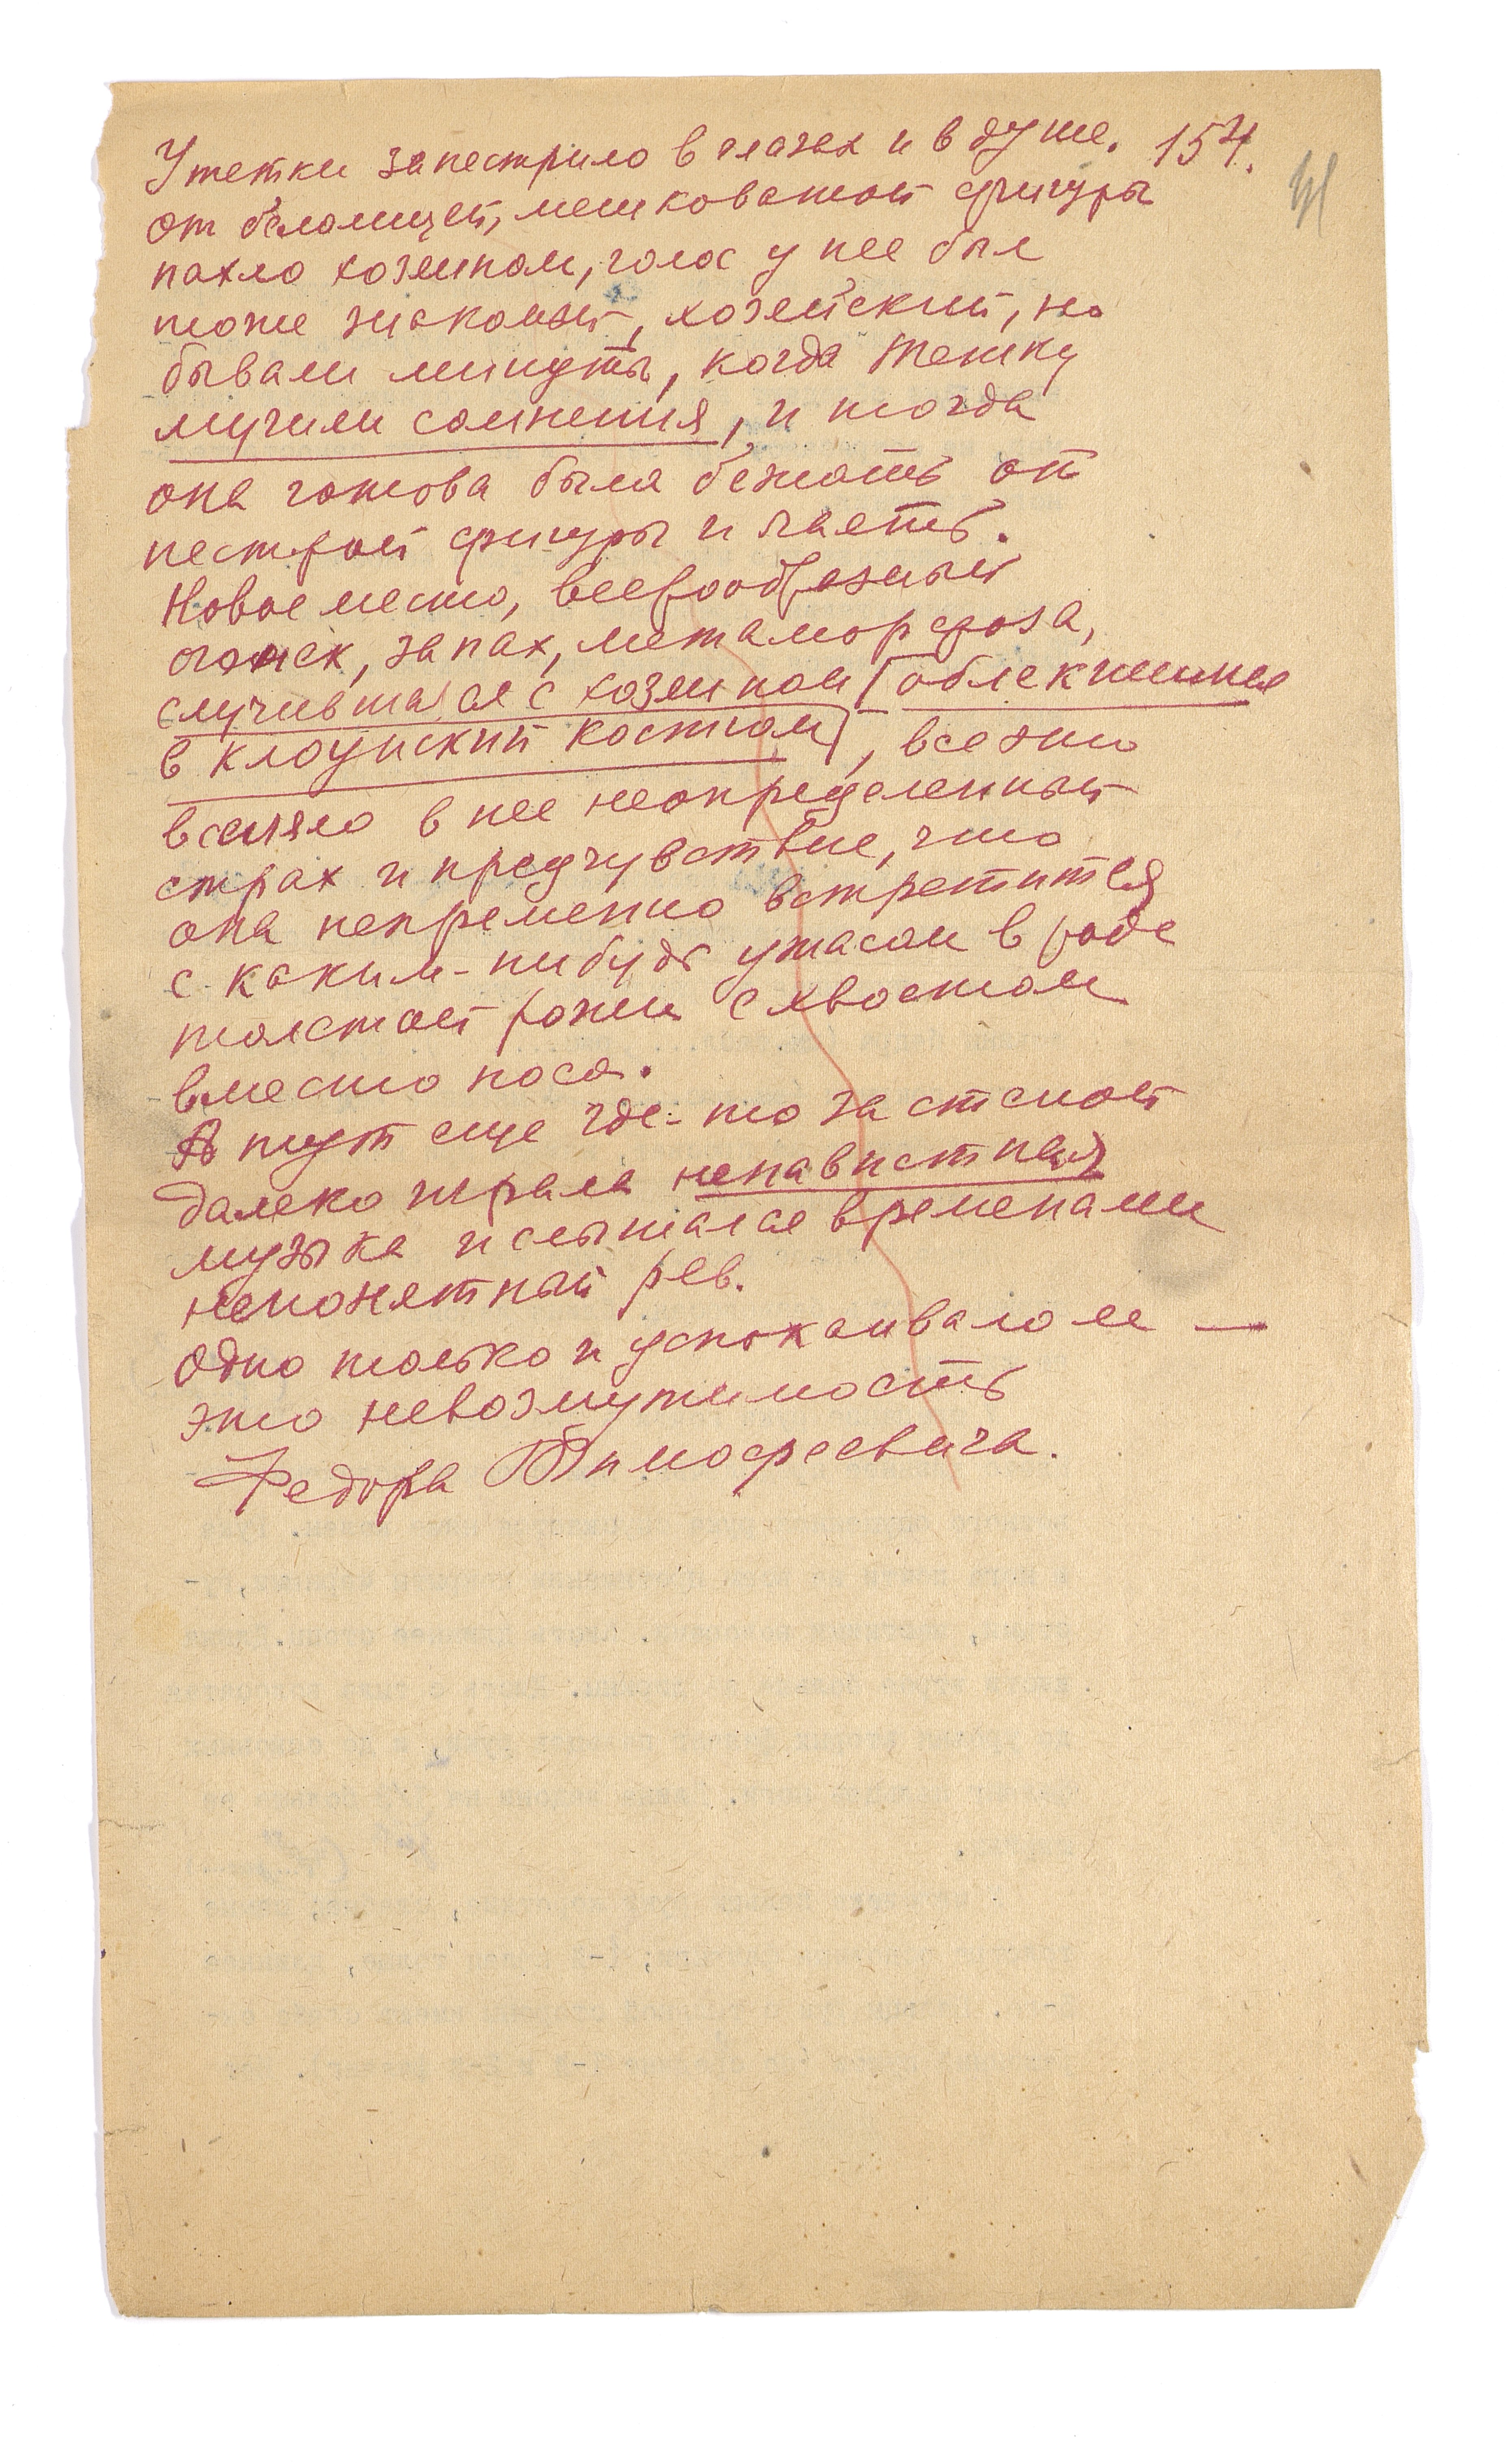 У тетки запестрило в глазах и в душе. 154.
от белолицей, мешковатой фигуры
пахло хозяином, голос у нее был
тоже знакомый, хозяйский, но
бывали минуты, когда Тетку
мучили сомнения, и тогда
она готова была бежать от
пестрой фигуры и лаять.
Новое место, веерообразный
огонек, запах, метаморфоза,
случившаяся с хозяином (облекшимся
в клоунский костюм), все это
вселяло в нее неопределенный
страх и предчувствие, что
она непременно встретится
с каким-нибудь ужасом в роде
толстой рожи с хвостом
вместо носа.
А тут еще где-то за стеной
далеко играла ненавистная
музыка и слышался временами
непонятный рев.
Одно только и успокаивало ее —
это невозмутимость
Федора Тимофеевича.